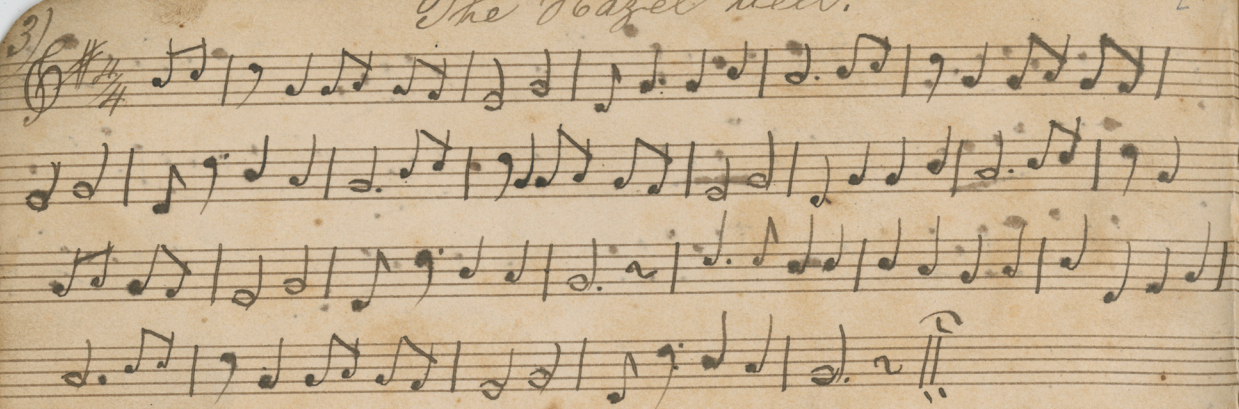 The Hazel Dell.
3)
4/4